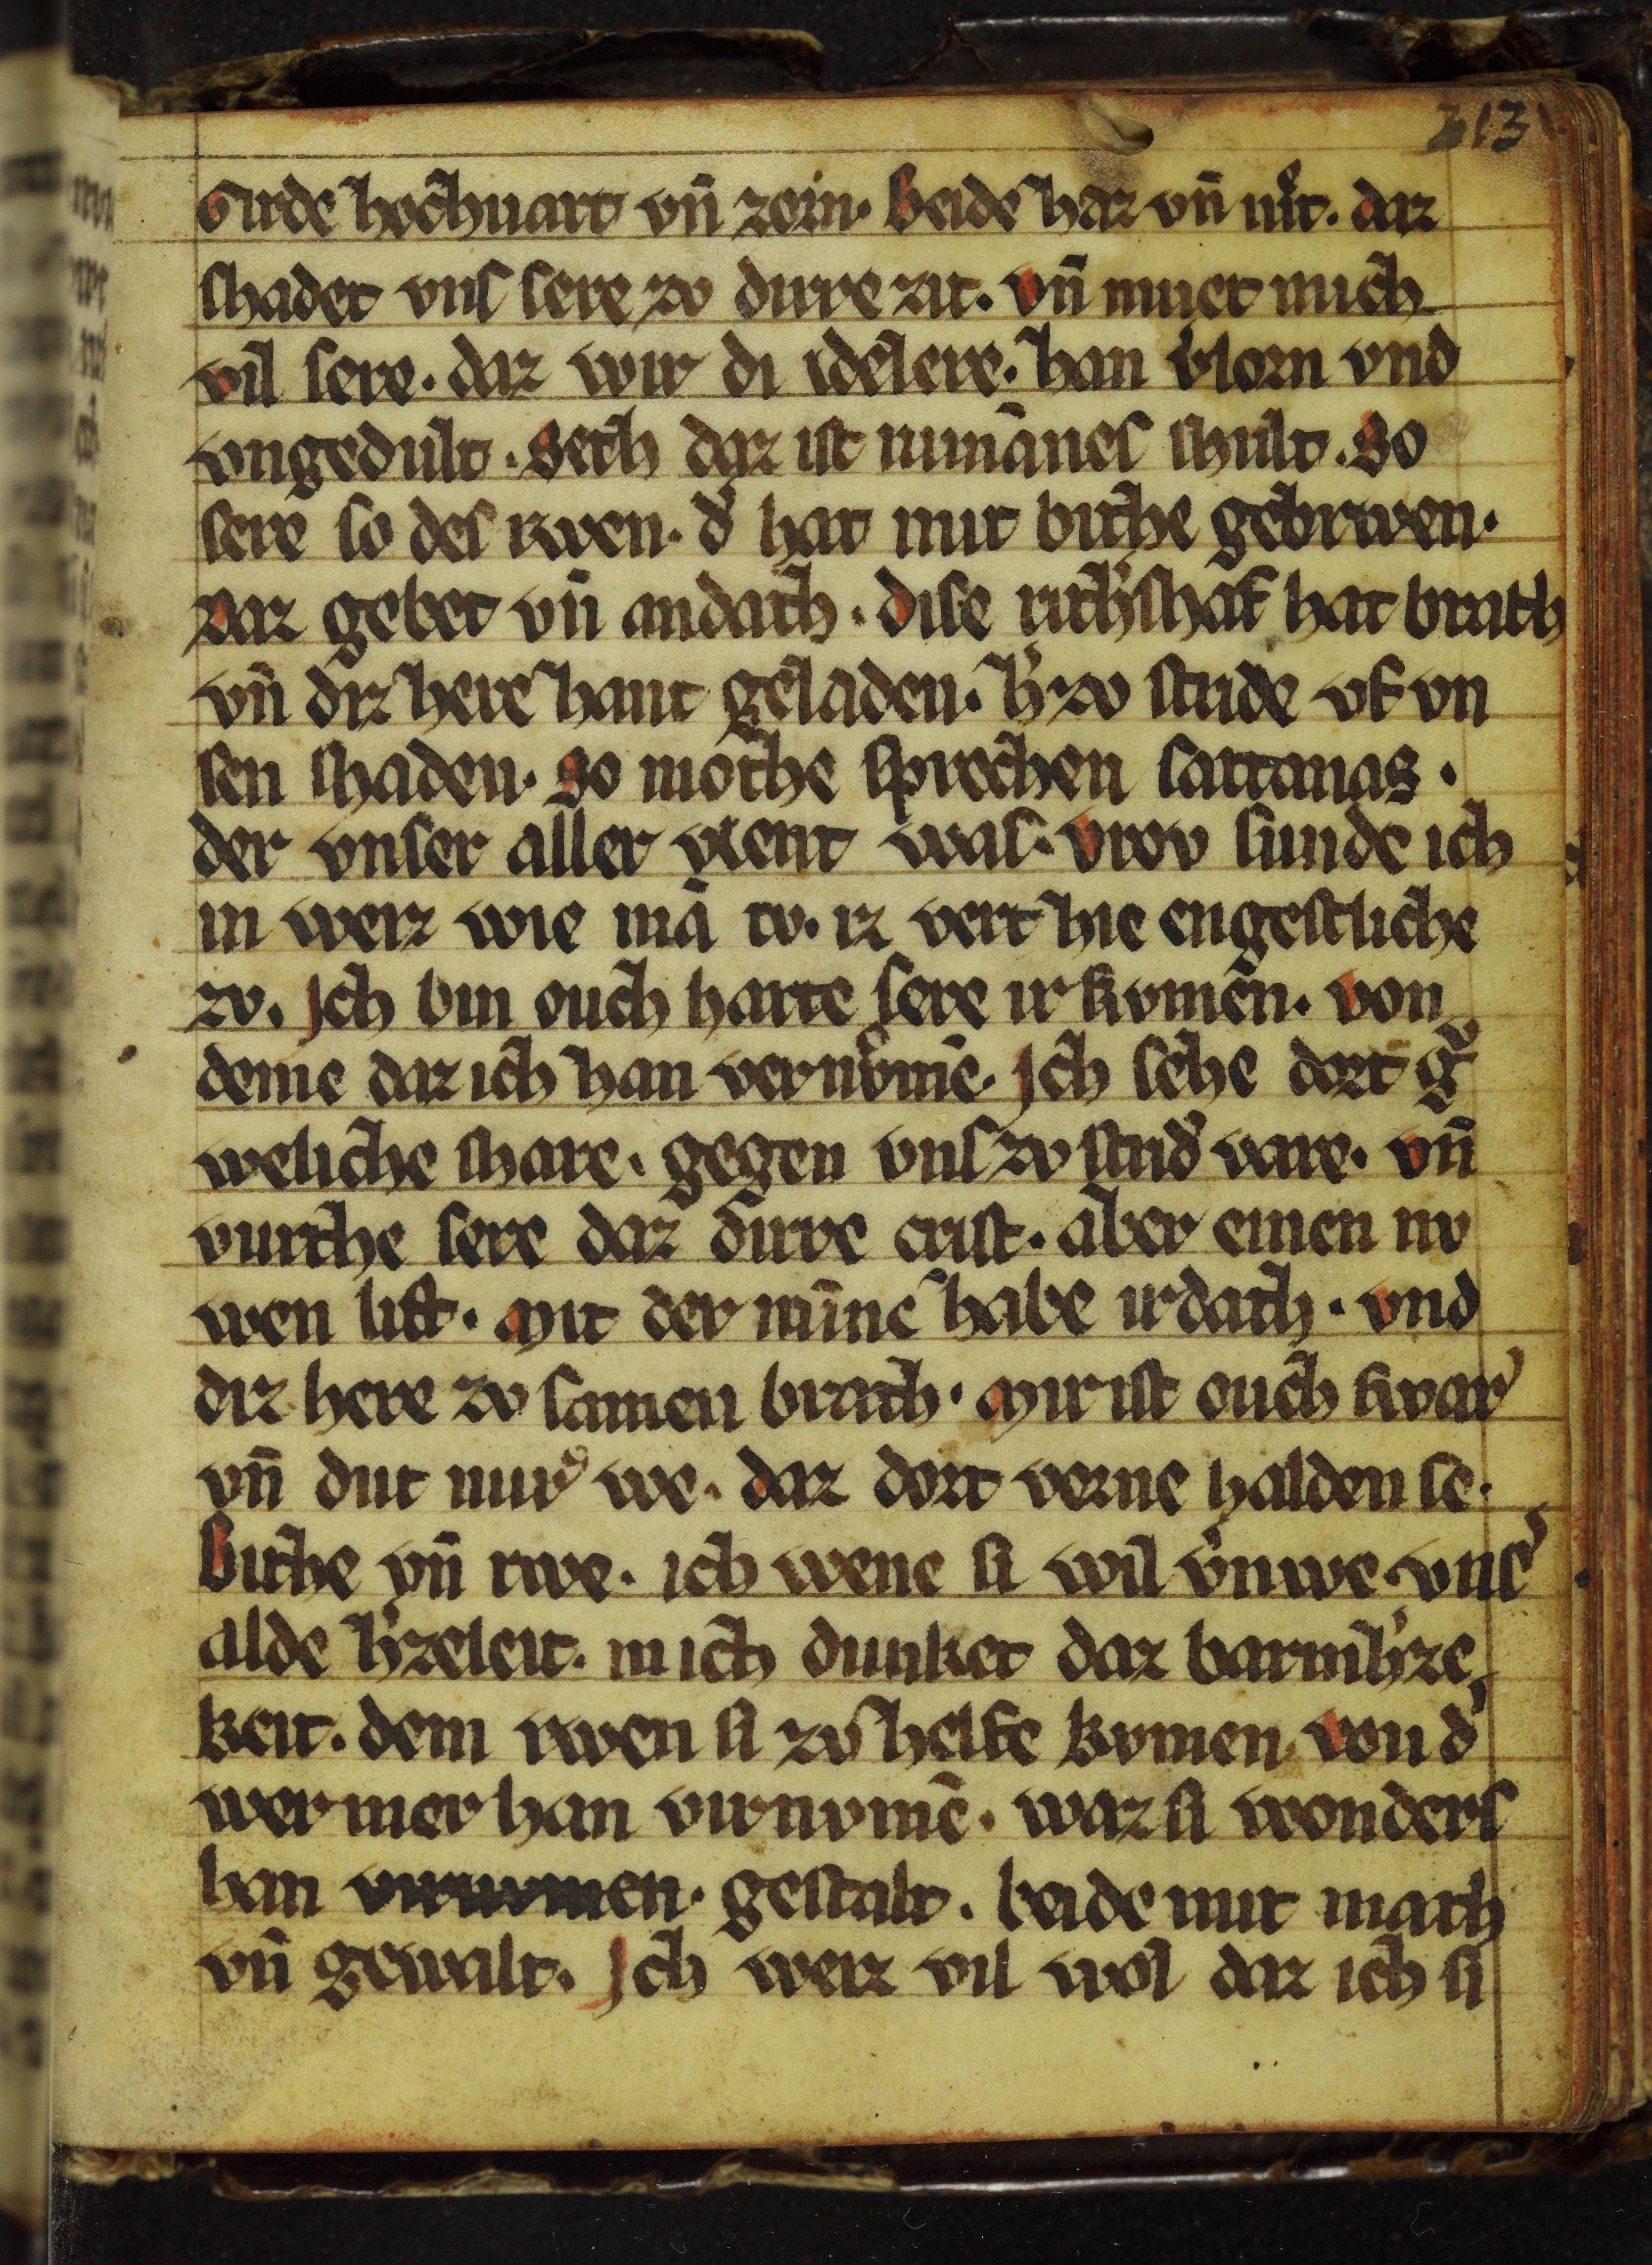 213
Girde hochuart vn̄ zorn. Beide haz vn̄ nit. daz
shadet vns sere zv dirre zit. vn̄ muet mich
vil sere. daz wir di idelere. han v͛lorn vnd
vngedult. Seth daz ist nimānes shult. So
sere so des rwen. d͛ hat mit bithe gebrwen.
Daz gebet vn̄ andath. Dise rith͛shaf hat brath
vn̄ diz here hant geladen. h͛ zv stride vf vn
sen shaden. So mothe sprechen sattanas.
der vnser aller vient was. Vrov sunde ich
in weiz wie mā tv. iz vert hie engestliche
zv. Ich bin ouch harte sere ir kvmen. von
deme daz ich han vernvmē. Ich sehe dort g͛
weliche share. gegen vns zv strid͛ vare. vn̄
vurthe sere daz dirre crist. aber einen nv
wen list. Mit der minne habe irdath. vnd
diz here zv samen brath. Mir ist ouch swar͛
vn̄ dut mir͛ we. daz dort verne halden se.
Bithe vn̄ rwe. ich wene si wil v͛nwe. vnse͛
alde h͛zeleit. mich dunket daz barmh͛ze
keit. dem rwen si zv helfe kvmen. von d͛
wer mer han virnvmē. waz si wonders
han gestalt. beide mit math
vn̄ gewalt. Ich weiz vil wol daz ich si